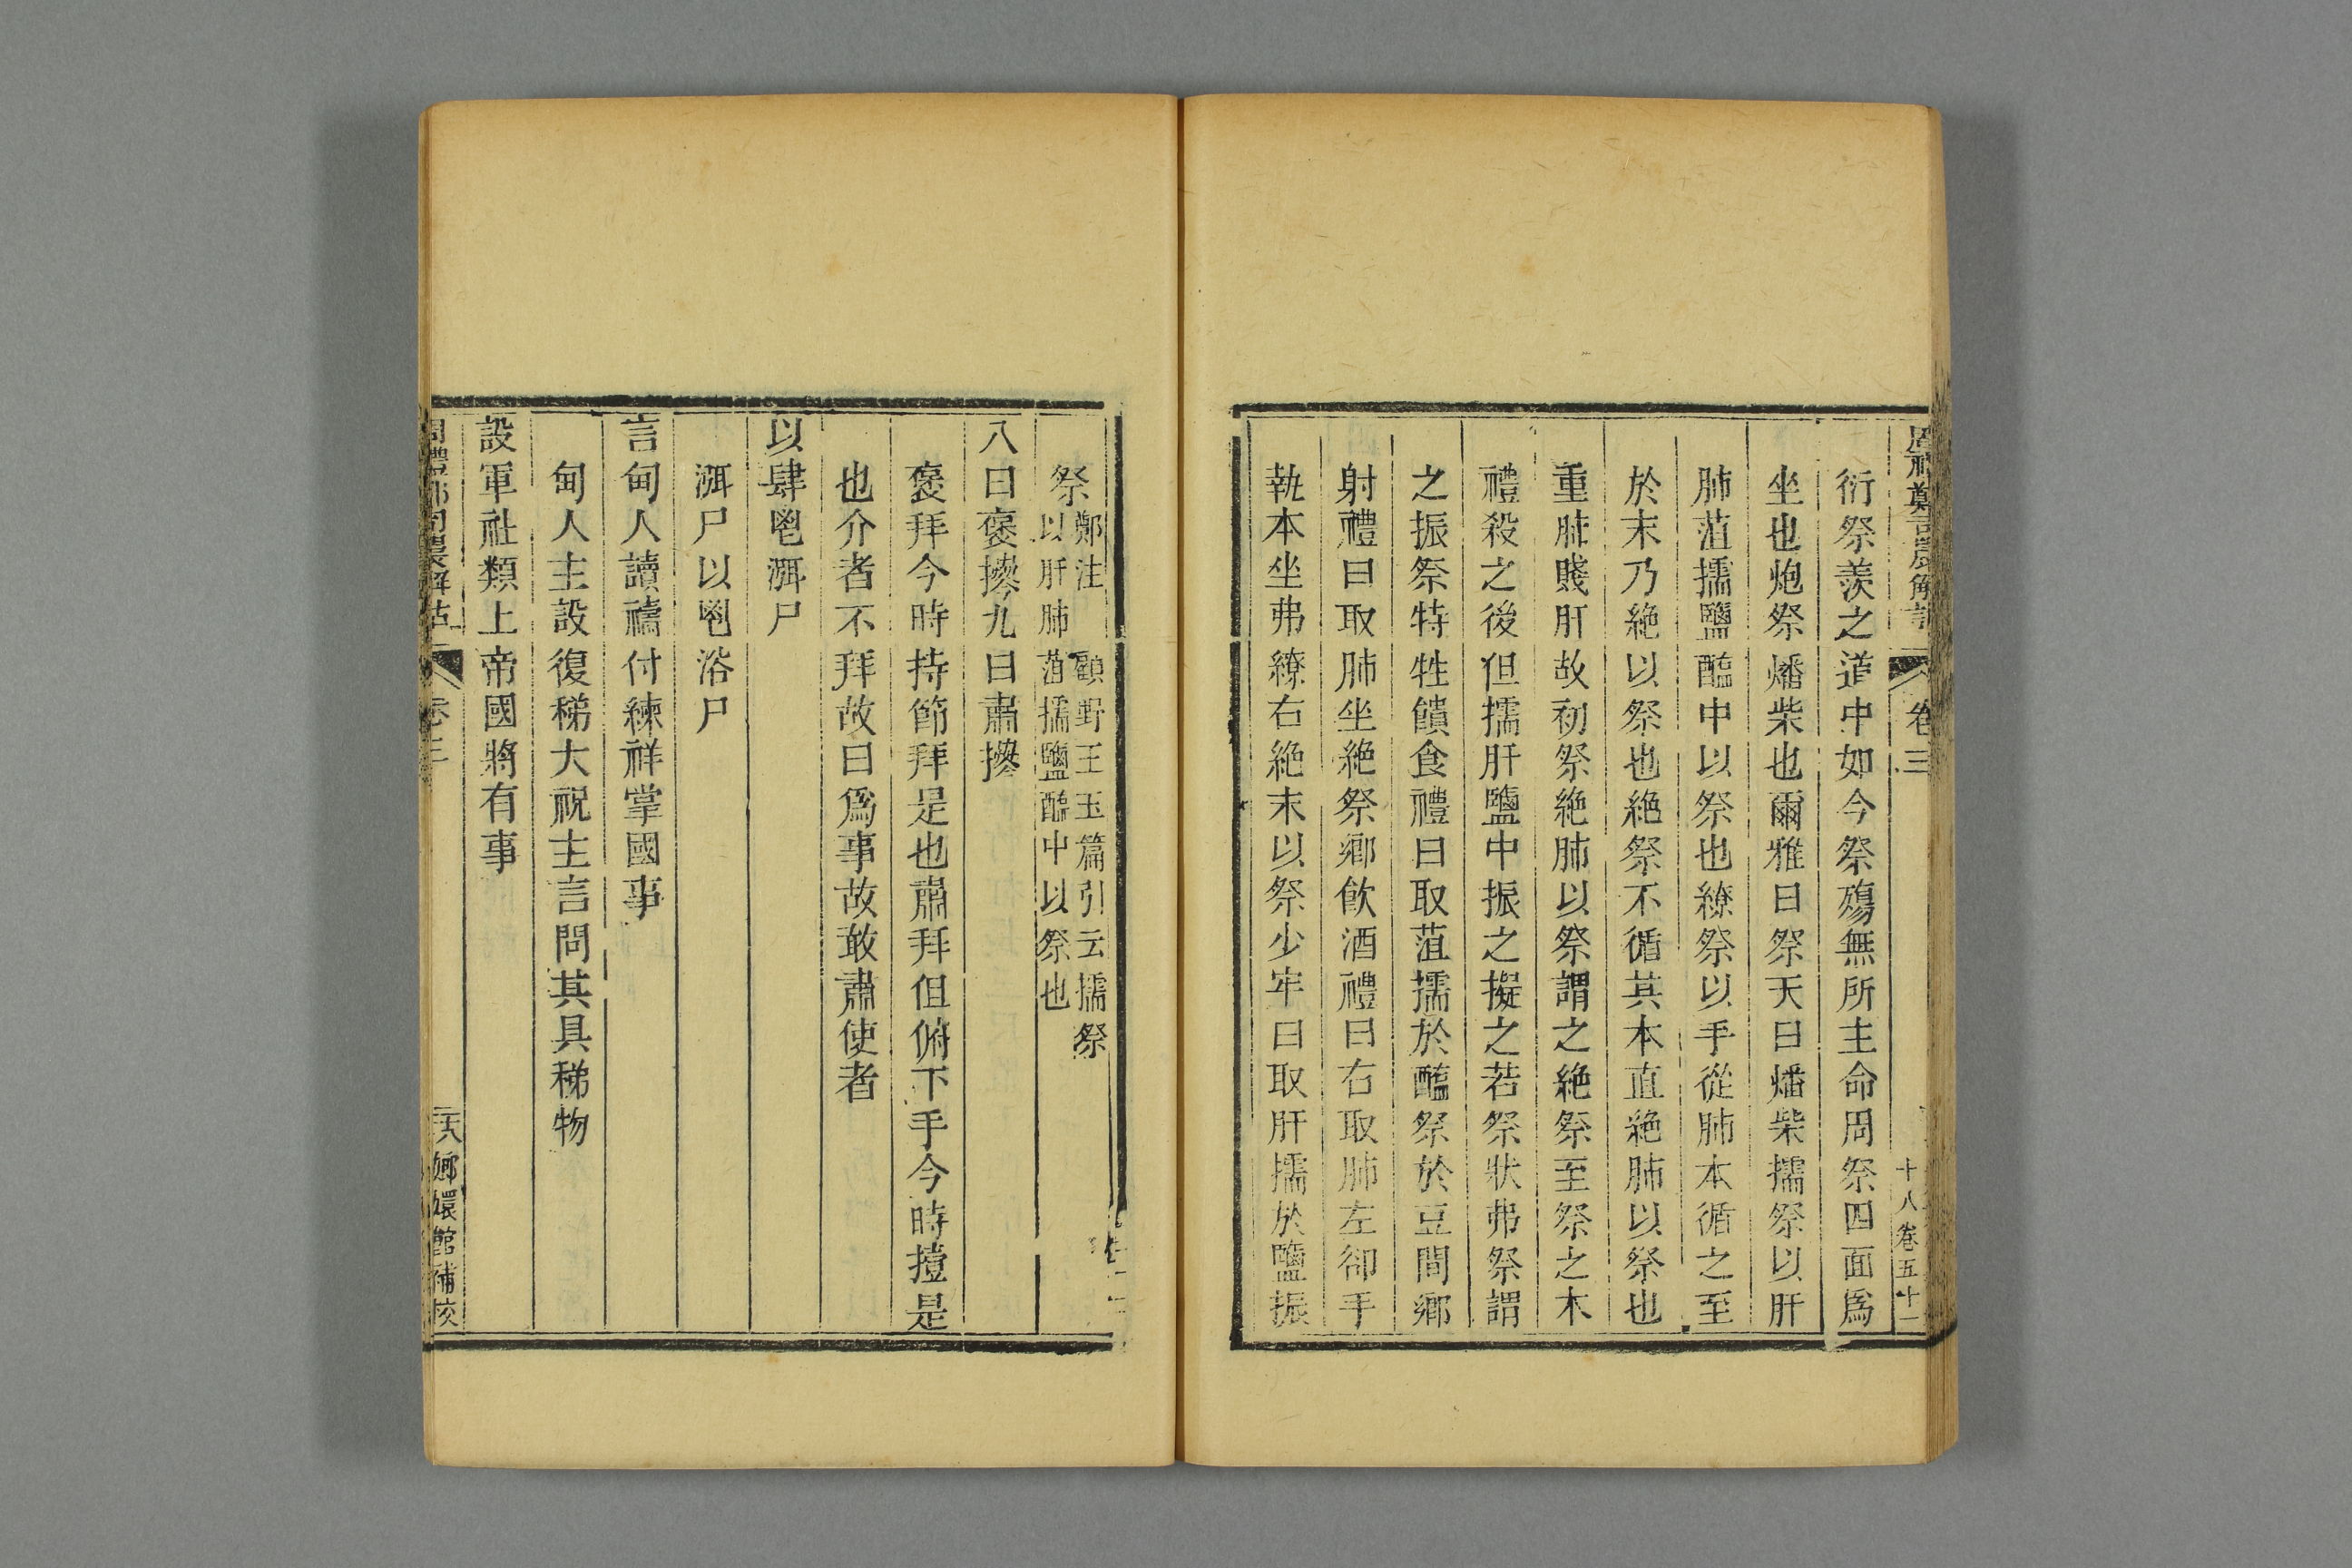 周禮鄭司農解詁 卷三 十八 卷五十一
衍祭羨之道中如今祭殤無所主命周祭四面爲
坐也炮祭燔柴也爾雅曰祭天曰燔柴擩祭以肝
肺菹擩鹽醢中以祭也繚祭以手從肺本循之至
於末乃絶以祭也絶祭不循其本直絶肺以祭也
重肺賤肝故初祭絶肺以祭謂之絶祭至祭之木
禮殺之後但擩肝鹽中振之擬之若祭狀弗祭謂
之振祭特牲饋食禮曰取菹擩於醢祭於豆間鄉
射禮曰取肺坐絶祭鄉飮酒禮曰右取肺左卻手
執本坐弗繚右絶末以祭少牢曰取肝擩於鹽振
祭鄭注 顧野王玉篇引云擩祭
以肝肺菹擩鹽醢中以祭也
八曰褒㩒九曰肅㩒
褒拜今時持節拜是也肅拜但俯下手今時撎是
也介者不拜故曰爲事故敢肅使者
以肆鬯渳尸
渳尸以鬯浴尸
言甸人讀禱付練祥掌國事
甸人主設復梯大祝主言問其具梯物
設軍社類上帝國將有事
周禮鄭司農解詁 卷三 嫏嬛館補校